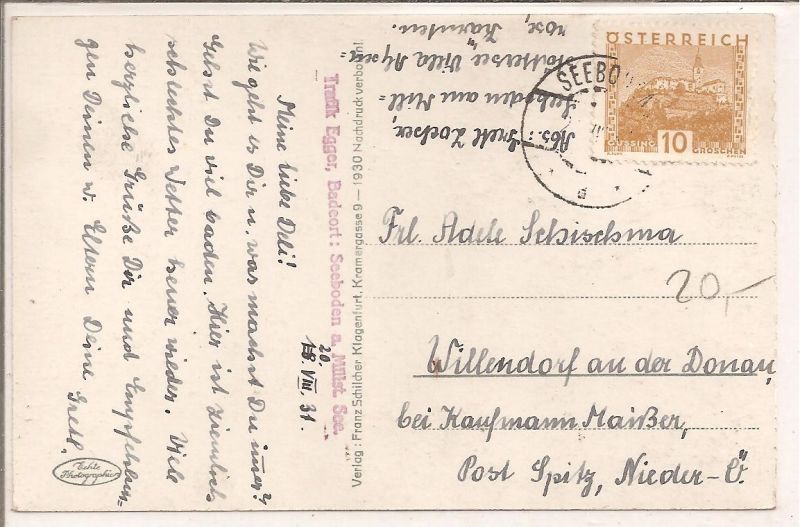 20.
18. VIII. 31.
Meine liebe Deli!
Wie geht es Dir u. was machst Du imer?
Gehst Du viel baden. Hier ist ziemlich
schlechtes Wetter heuer wieder. Viele
herzliche Grüße Dir und Empfehlun-
gen Deinen w. Eltern Deine Gretl.
Echte
Photographie
Trafik Egger, Badeort: Seeboden a. Millst. See.
Verlag: Franz Schilcher Klagenfurt, Kramergasse 9 — 1930 Nachdruck verboten!
Abs.: Gretl
Seeboden am Mill-
stättersee Villa
rose, Kärnten.
ÖSTERREICH
GÜSSING
10
GROSCHEN
SEEBODEN
a
Frl. Adele Schischma
20,-
Willendorf an der Donau,
bei Kaufmann Maißer,
Post Spitz, Nieder-Ö.